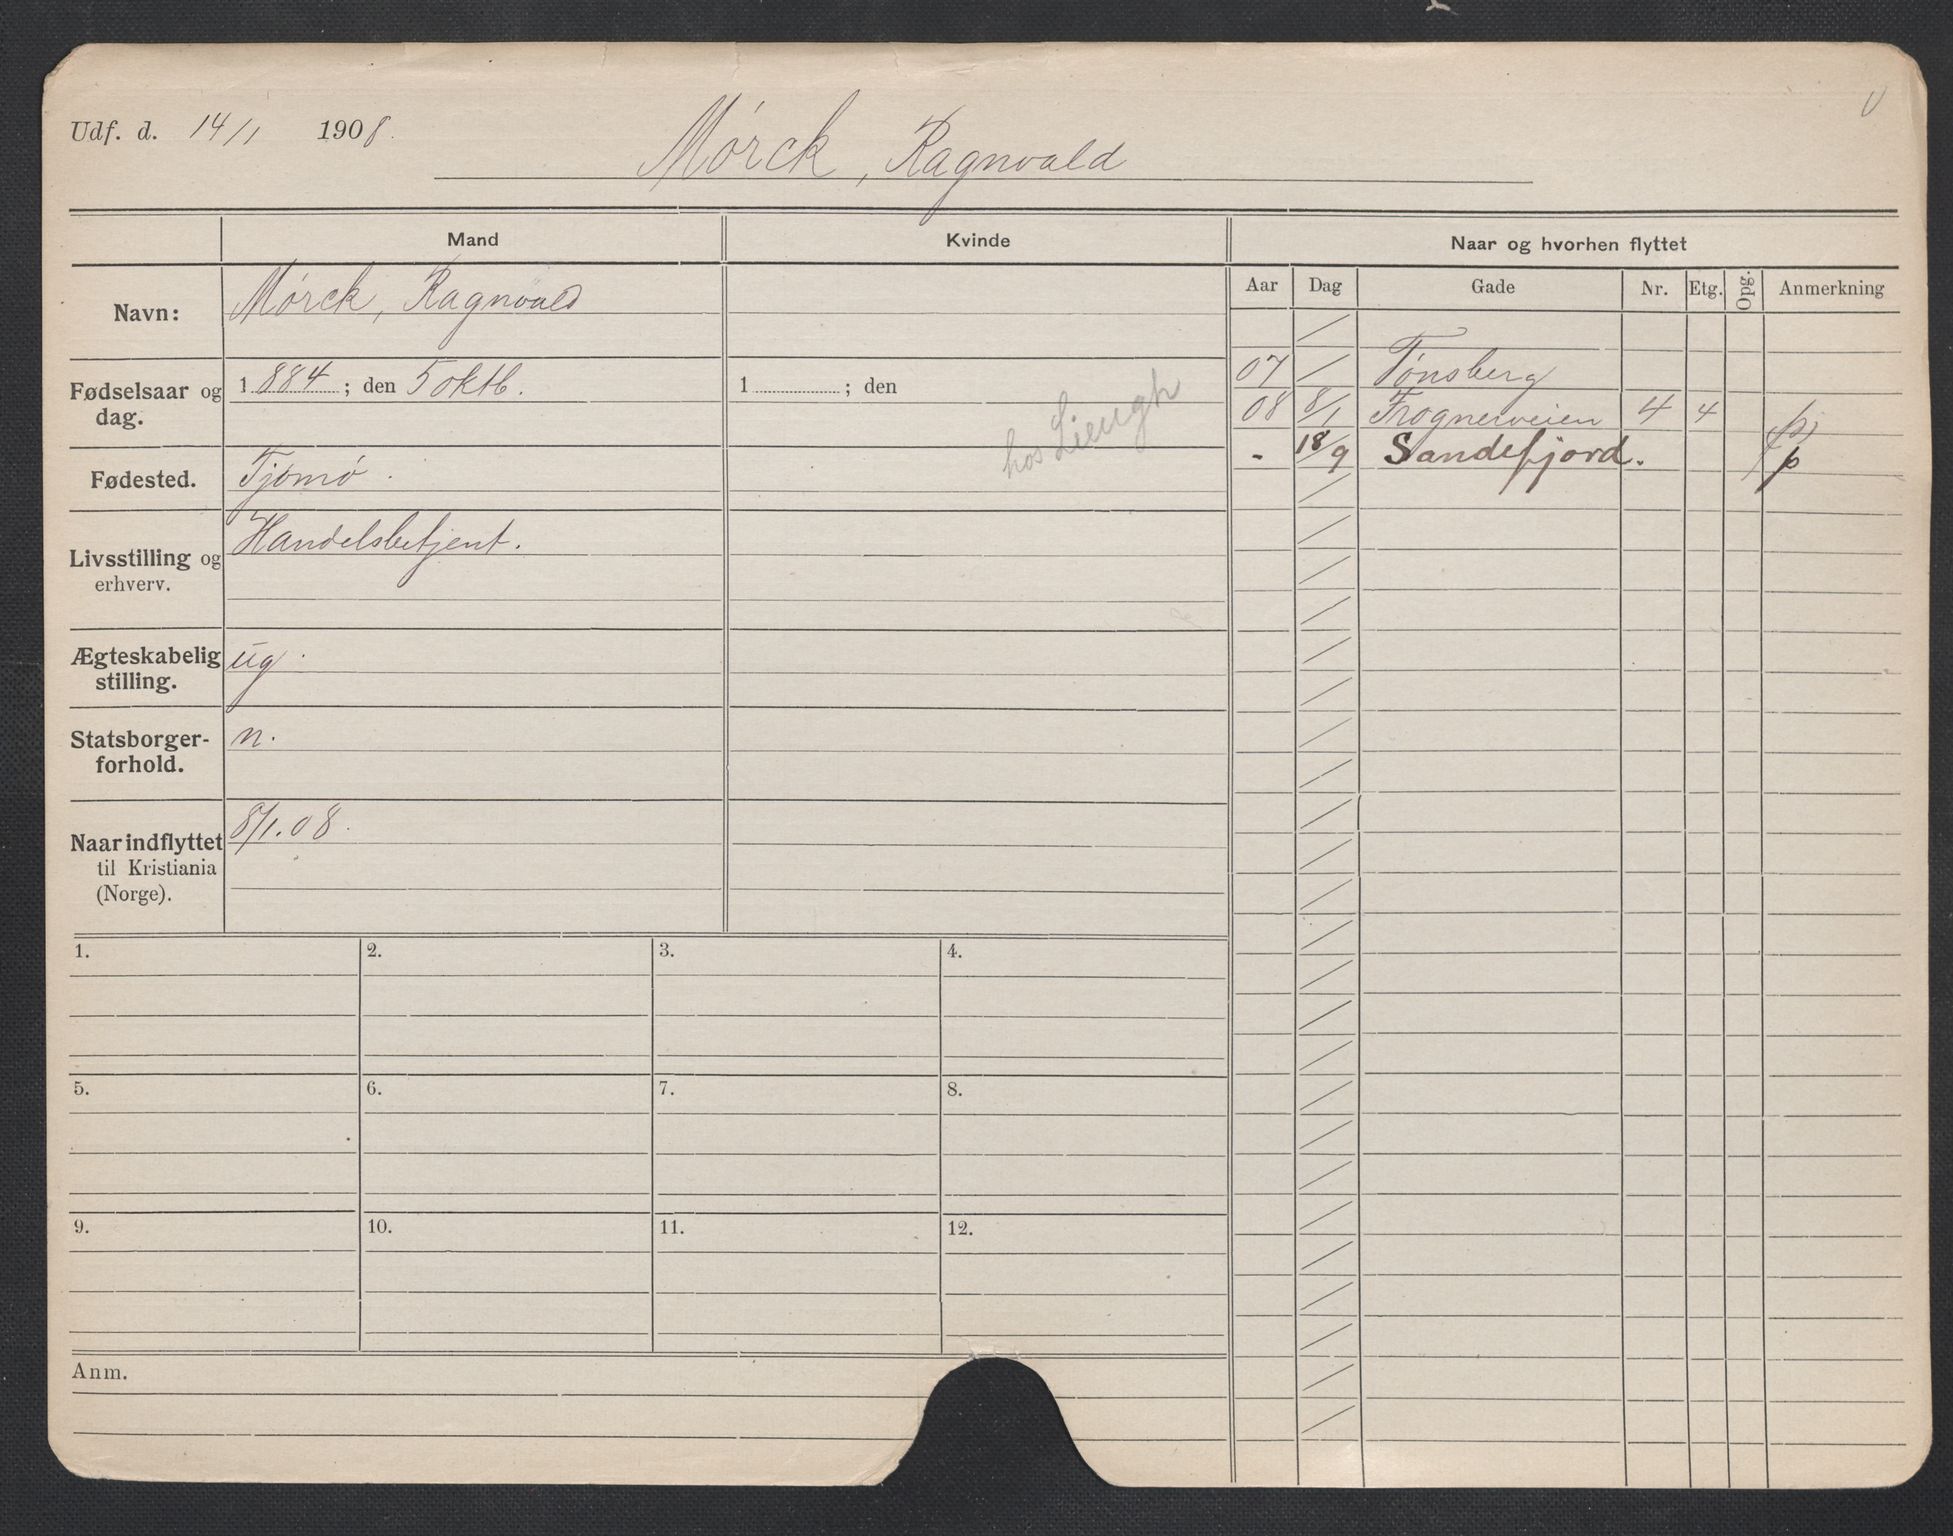 Udf. d. 14/1 1908.
Mørck, Ragnvald
Mand
Kvinde
Naar og hvorhen flyttet
Navn:
Mørck, Ragnvald
Fødselsaar og dag.
1884; den 5 oktb.
1 ; den
Fødested.
Tjømø.
hos
Livsstilling og
erhverv.
Handelsbetjent.
Ægteskabelig
stilling.
ug.
Statsborger-
forhold.
n.
Naar indflyttet
til Kristiania
(Norge).
8/1.08.
Aar Dag Gade Nr. Etg. Opg. Anmerkning
07 / Tønsberg
08 8/1 Frognerveien 4 4 p
- 18/9 Sandefjord. p
1. 2. 3. 4.
5. 6. 7. 8.
9. 10. 11. 12.
Anm.